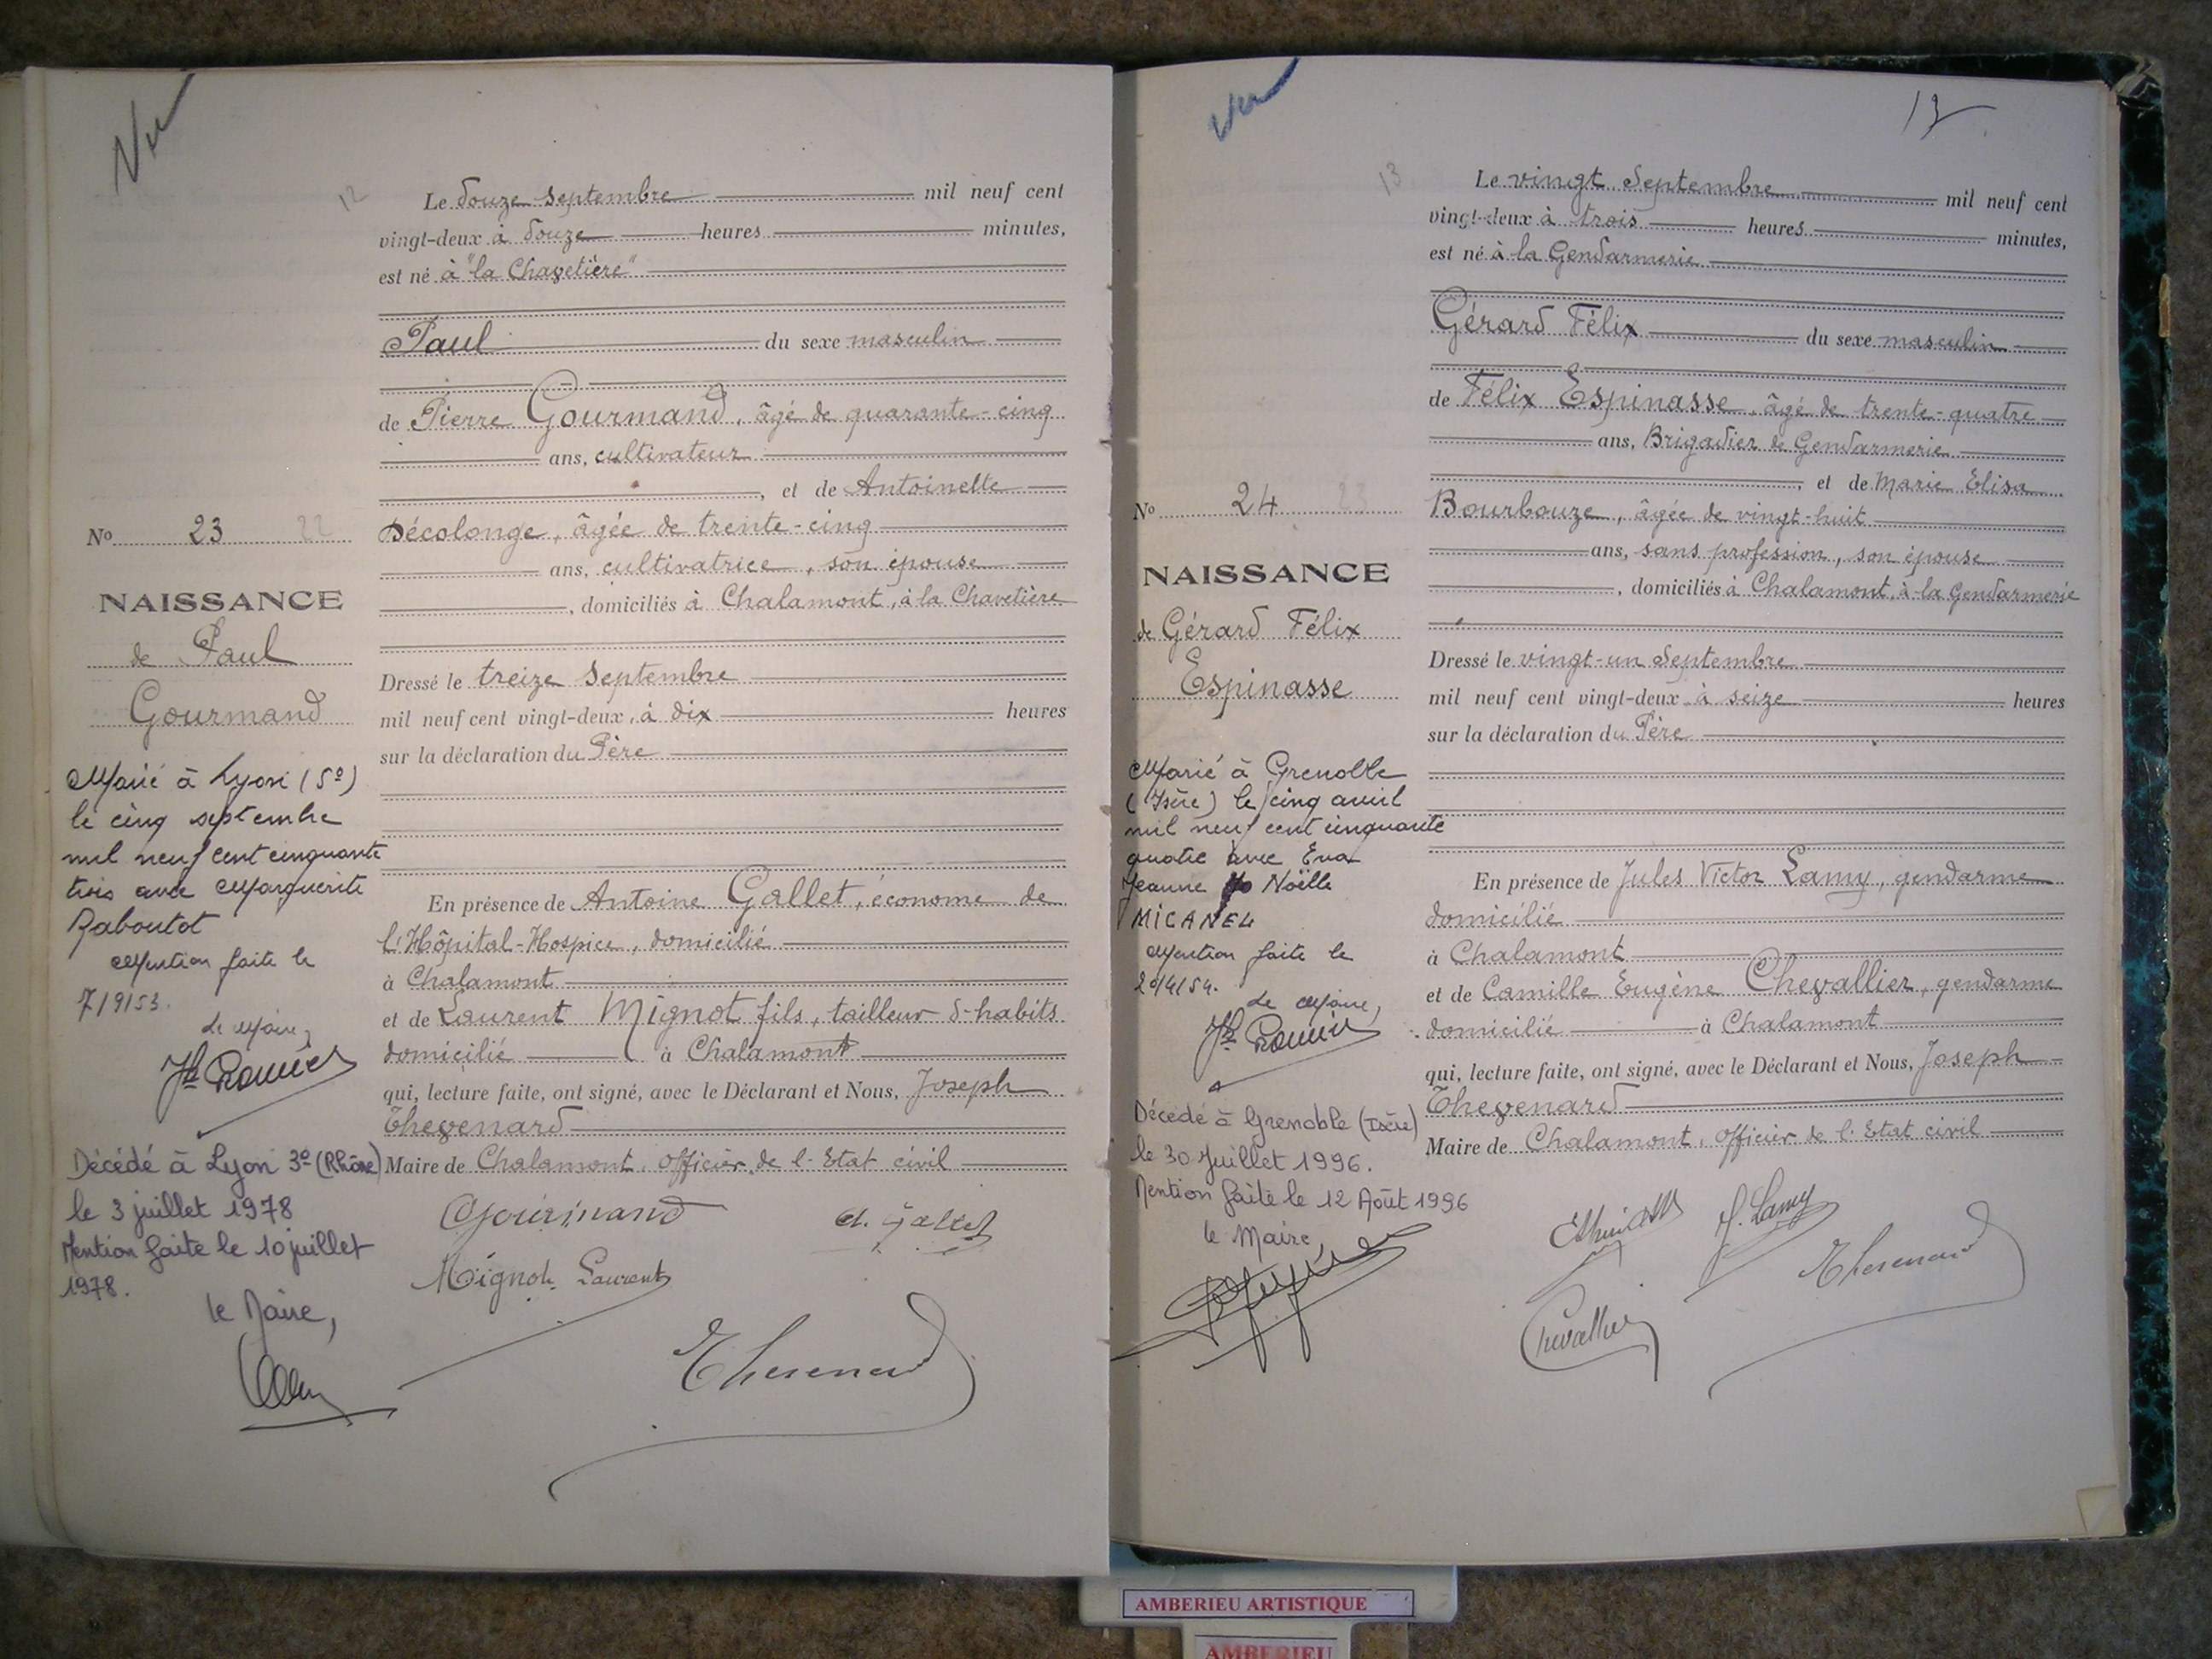 Vu
12
Le douze septembre mil neuf cent
vingt-deux à douze heures minutes,
est né à "la Chavetière"
Paul du sexe masculin
de Pierre Gourmand, âgé de quarante-cinq
ans, cultivateur
, et de Antoinette
Décolonge, âgée de trente-cinq
ans, cultivatrice, son épouse
, domiciliés à Chalamont, à la Chavetière
Dressé le treize septembre
mil neuf cent vingt-deux, à dix heures
sur la déclaration du Père
En présence de Antoine Gallet, économe de
l'Hôpital-Hospice, domicilié
à Chalamont
et de Laurent Mignot fils, tailleur d'habits
domicilié à Chalamont
qui, lecture faite, ont signé, avec le Déclarant et Nous, Joseph
Thevenard
Maire de Chalamont, Officier de l'Etat civil
Gourmand
A. Gallet
Mignot Laurent
Thevenard
No 23 22
NAISSANCE
de Paul
Gourmand
Marié à Lyon (5e)
le cinq septembre
mil neuf cent cinquante
trois avec Marguerite
Raboutot
Mention faite le
7/9/53.
Le Maire,
Décédé à Lyon 3e (Rhône)
le 3 juillet 1978
Mention faite le 10 juillet
1978.
le Maire,
Vu
13
13
Le vingt Septembre mil neuf cent
vingt-deux à trois heures minutes,
est né à la Gendarmerie
Gérard Félix du sexe masculin
de Félix Espinasse, âgé de trente-quatre
ans, Brigadier de Gendarmerie
, et de Marie Elisa
Bourbouze, âgée de vingt-huit
ans, sans profession, son épouse
, domiciliés à Chalamont, à la Gendarmerie
Dressé le vingt-un Septembre
mil neuf cent vingt-deux à seize heures
sur la déclaration du Père
En présence de Jules Victor Lamy, gendarme
domicilié
à Chalamont
et de Camille Eugène Chevallier, gendarme
domicilié à Chalamont
qui, lecture faite, ont signé, avec le Déclarant et Nous, Joseph
Thevenard
Maire de Chalamont, Officier de l'Etat civil
Espinasse
J. Lamy
Chevallier
Thevenard
No 24 23
NAISSANCE
de Gérard Félix
Espinasse
Marié à Grenoble
(Isère) le cinq avril
mil neuf cent cinquante
quatre avec Eva
Jeanne Noëlle
MICANEL
Mention faite le
Le Maire,
Décédé à Grenoble (Isère)
le 30 Juillet 1996.
Mention faite le 12 Août 1996
le Maire,
AMBERIEU ARTISTIQUE
AMBERIEU